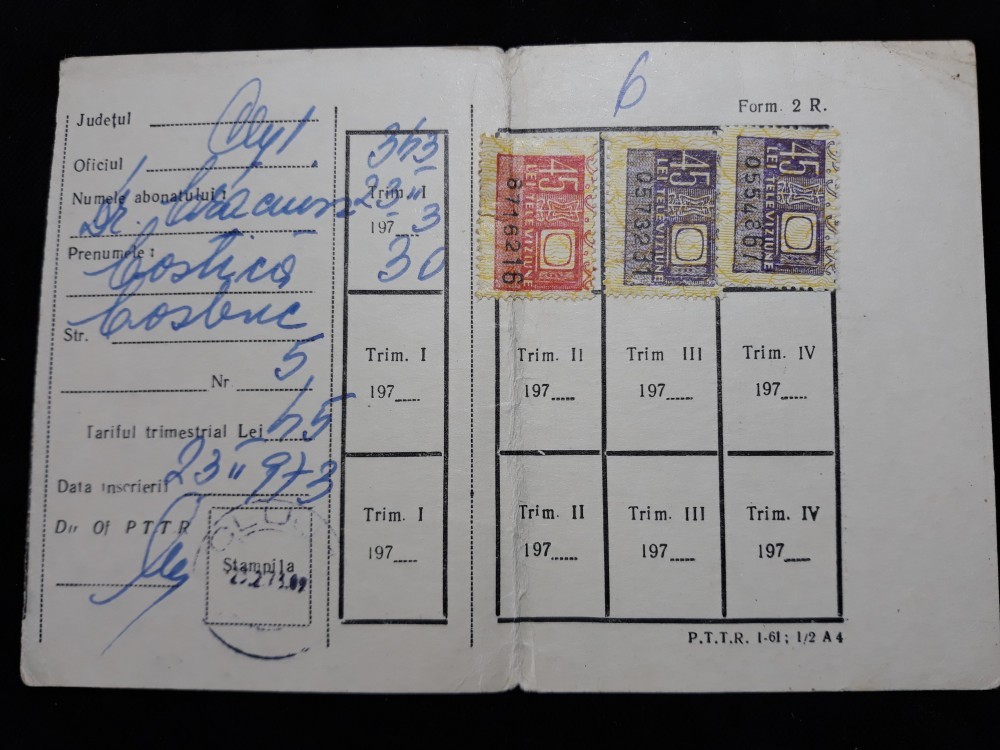 6
Form. 2 R.
Judeţul
Cluj
Oficiul
Numele abonatului:
Dr.
Prenumele:
Costică
Str. Cosbuc
Nr 5
Tariful trimestrial Lei 45
Data inscrierii 23 II 973
Dir Of PTTR
Ştampila
CLUJ
23.2.73.09
343
Trim. I
23 II
197 3
30
45
LEI TELEVIZIUNE
8716216
45
LEI TELEVIZIUNE
0573231
45
LEI TELEVIZIUNE
0554867
Trim. I
Trim. II
Trim III
Trim. IV
197
197
197
197
Trim. I
Trim. II
Trim. III
Trim. IV
197
197
197
197
P.T.T.R. 1-61; 1/2 A 4